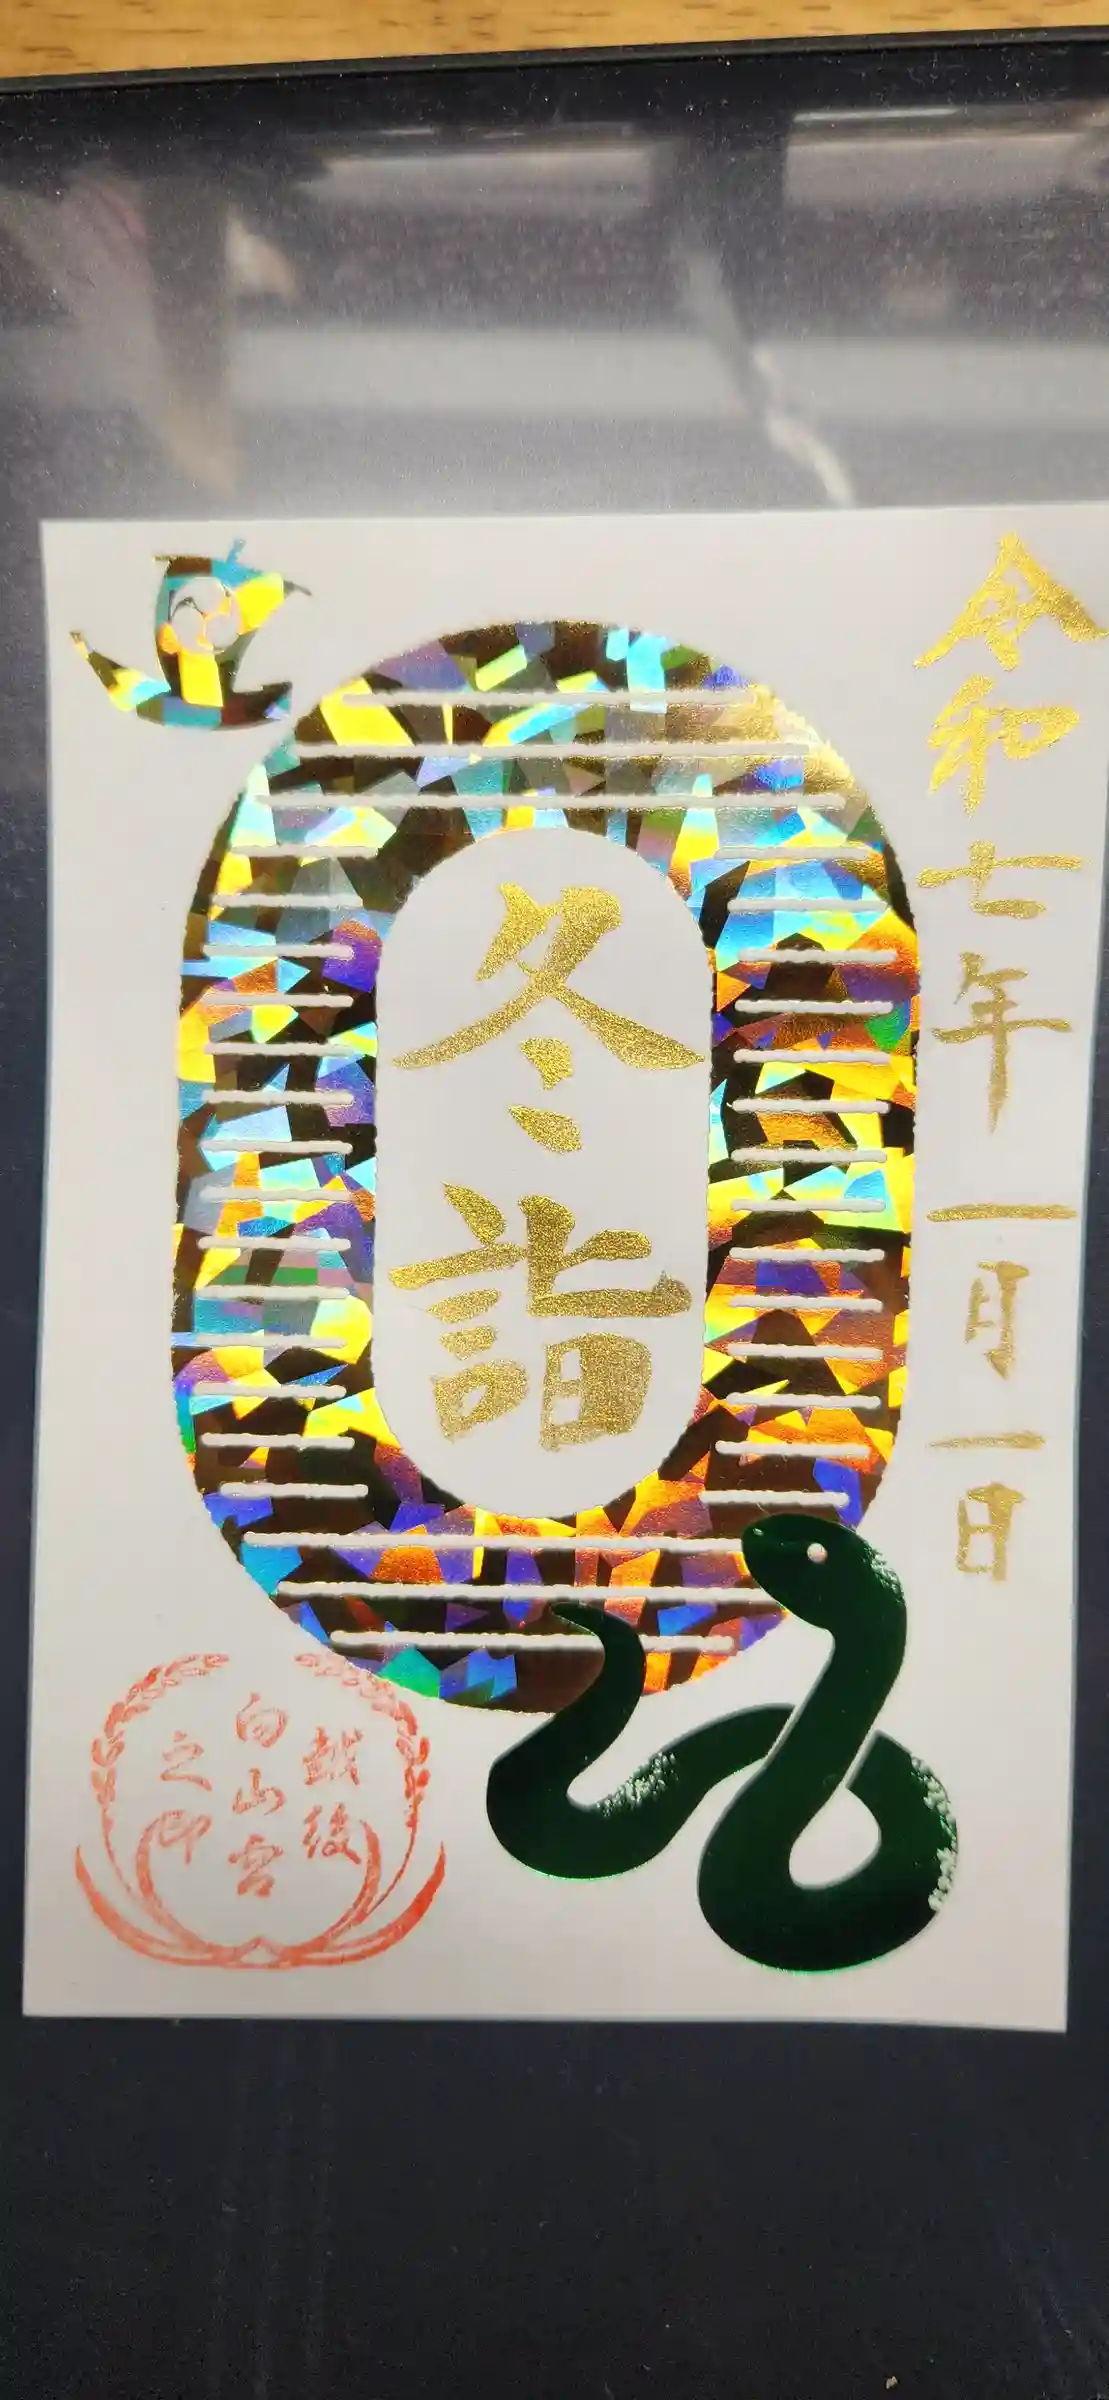 令和七年一月一日
冬詣
越後
白山宮
之印